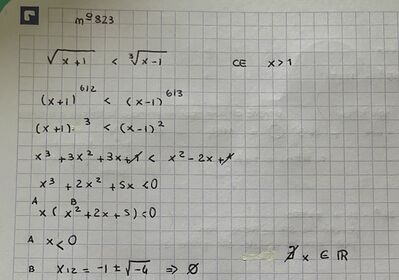 n° 823
√(x+1) < ∛(x-1) CE x>1
(x+1)^6/2 < (x-1)^6/3
(x+1)^3 < (x-1)^2
x³ + 3x² + 3x + 1 < x² - 2x + 1
x³ + 2x² + 5x < 0
A B
x (x² + 2x + 5) < 0
A x < 0
∄ x ∈ ℝ
B x12 = -1 ± √-4 ⇒ ∅